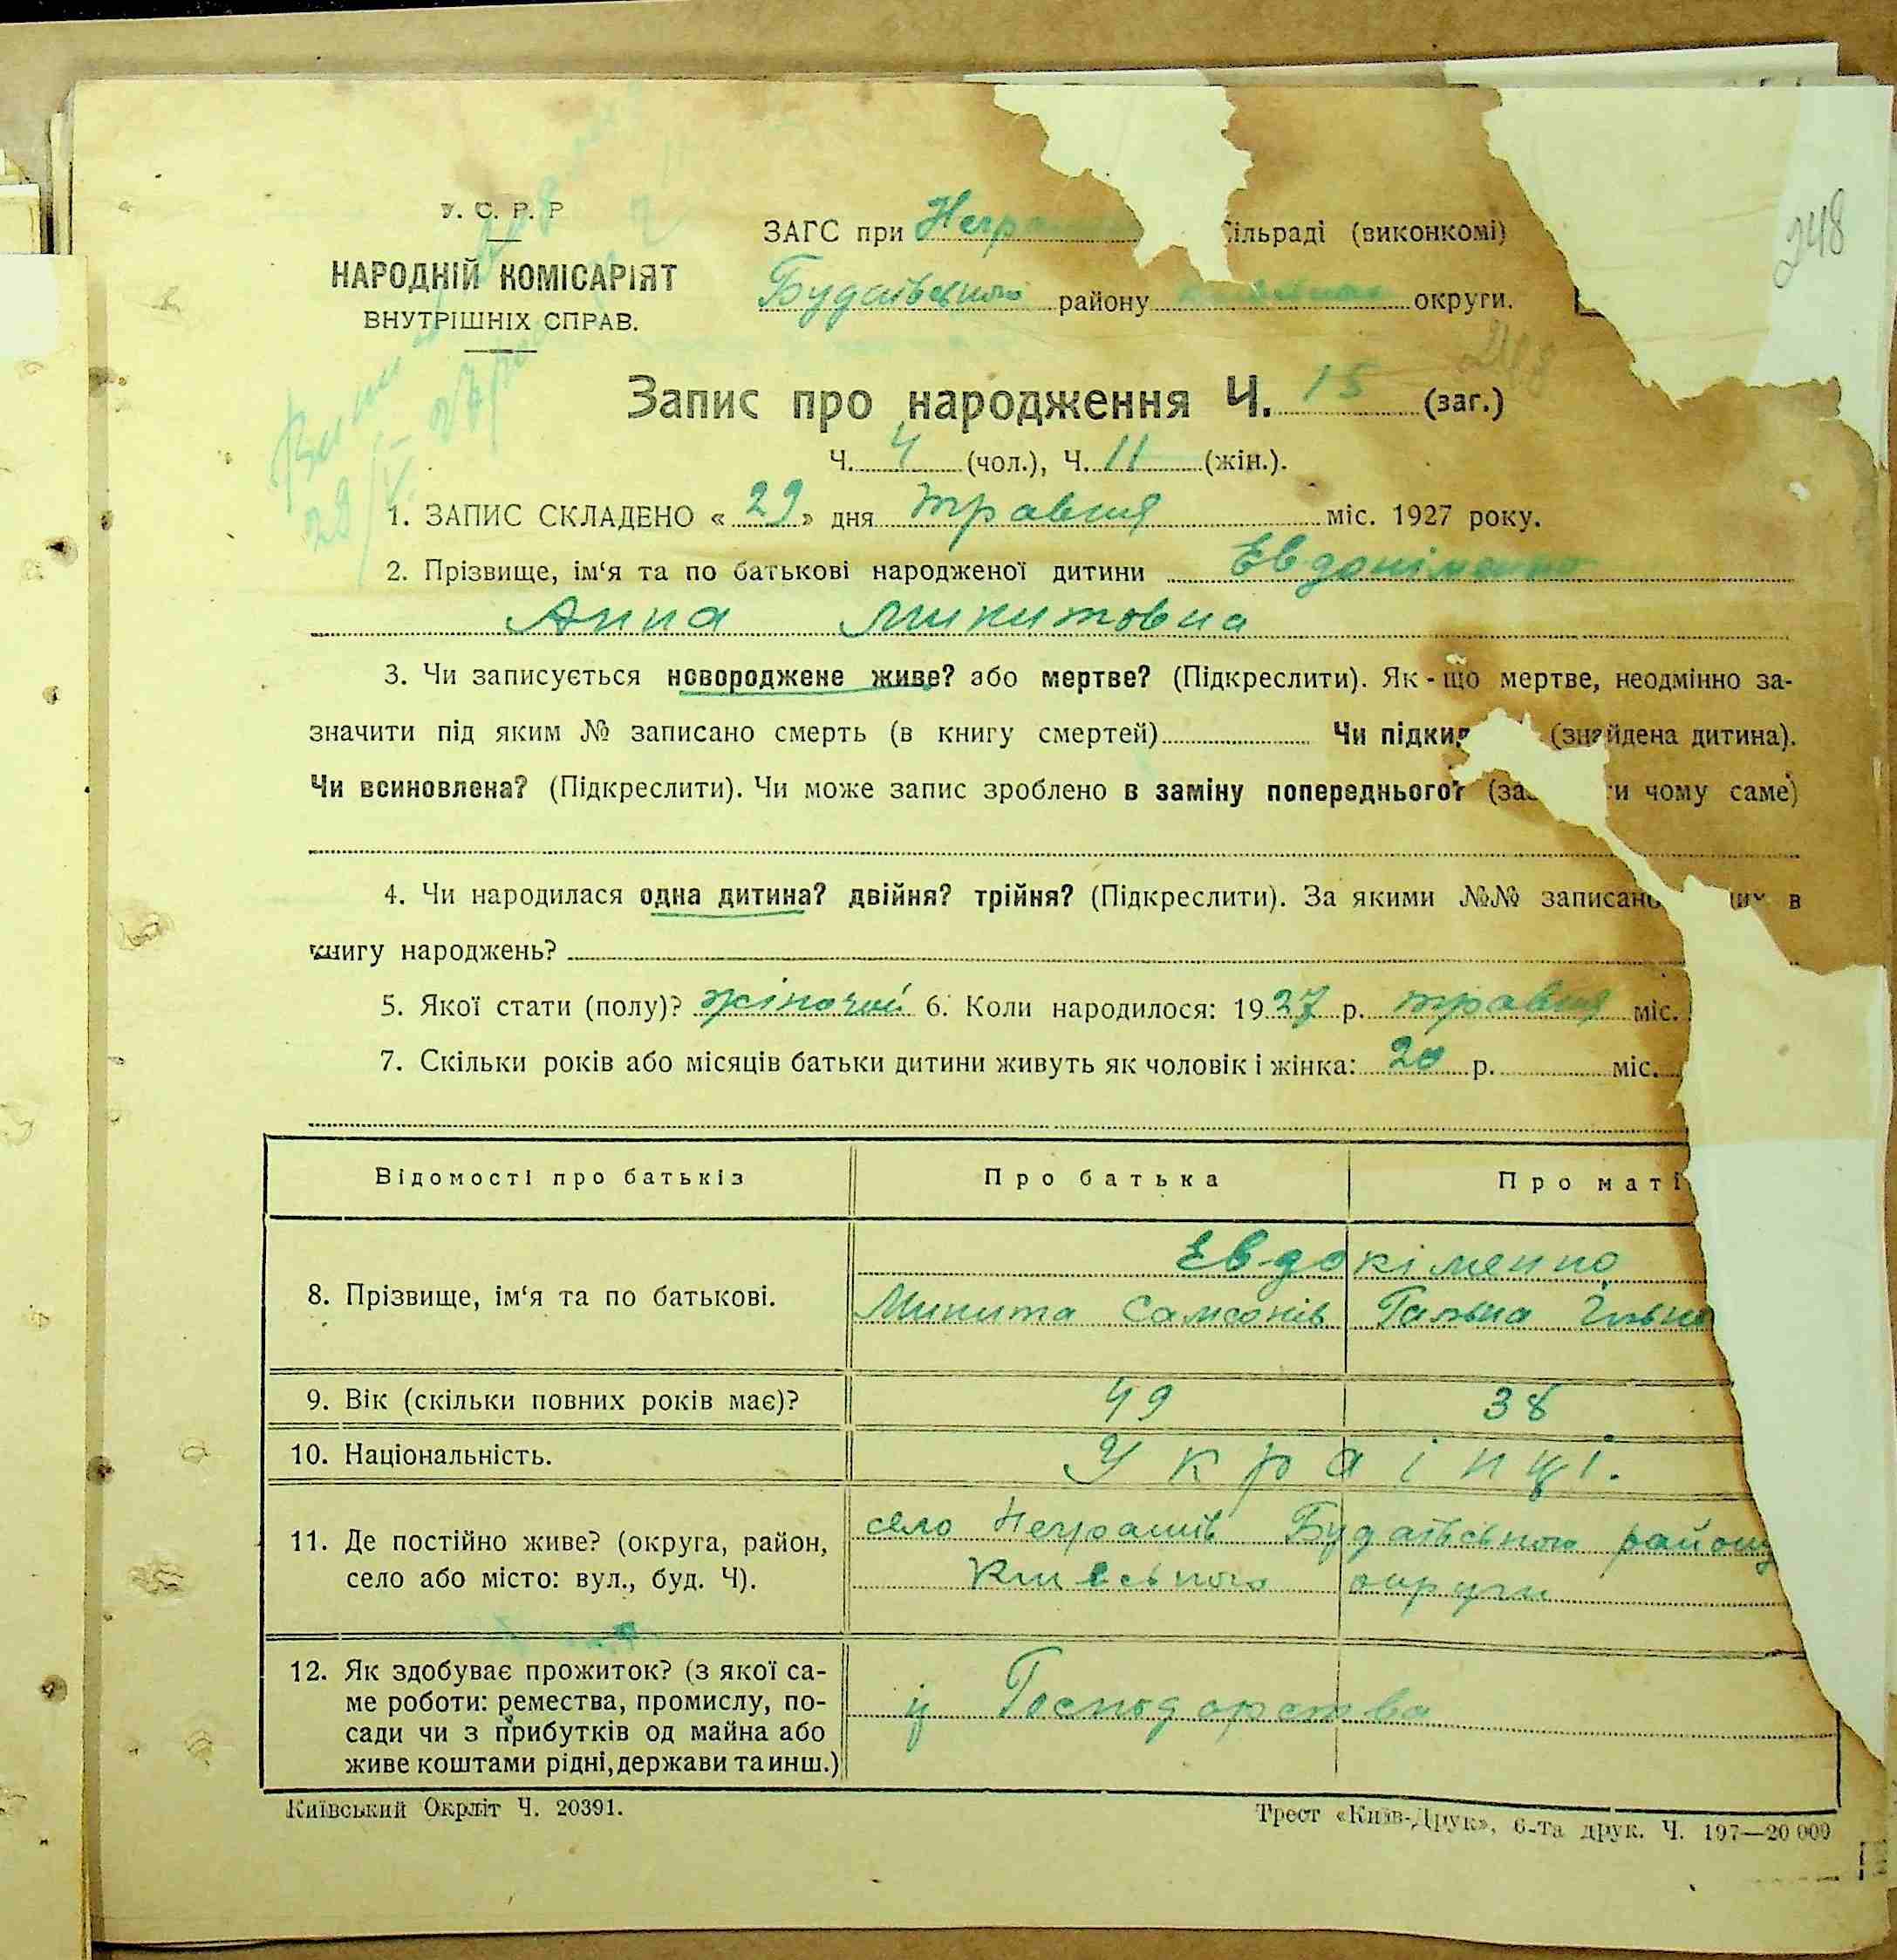 248
У. С. Р. Р
НАРОДНІЙ КОМІСАРІЯТ
ВНУТРІШНІХ СПРАВ.
ЗАГС при сільраді (виконкомі)
Будаївського району округи.
248
Запис про народження Ч. 15 (заг.)
Ч. 4 (чол.), Ч. 11 (жін.).
1. ЗАПИС СКЛАДЕНО « 29 » дня травня міс. 1927 року.
2. Прізвище, ім‘я та по батькові народженої дитини Евдокіменко
Анна Микитовна
3. Чи записується новороджене живе? або мертве? (Підкреслити). Як-що мертве, неодмінно за-
значити під яким № записано смерть (в книгу смертей) Чи (знайдена дитина).
Чи всиновлена? (Підкреслити). Чи може запис зроблено в заміну попереднього? чому саме)
4. Чи народилася одна дитина? двійня? трійня? (Підкреслити). За якими №№ записано в
книгу народжень?
5. Якої стати (полу)? жіночой 6. Коли народилося: 1927 р. травня міс.
7. Скільки років або місяців батьки дитини живуть як чоловік і жінка: 20 р. міс.
Відомості про батьків Про батька Про матір
Евдокіменко
8. Прізвище, ім‘я та по батькові. Микита Самсонів Галька
9. Вік (скільки повних років має)? 49 38
10. Національність. Украінці.
11. Де постійно живе? (округа, район, село Неграши Будаївського району
село або місто: вул., буд. Ч). Киевського округи
12. Як здобуває прожиток? (з якої са-
ме роботи: ремества, промислу, по- із Господарства
сади чи з прибутків од майна або
живе коштами рідні, держави та инш.)
Київський Окрліт Ч. 20391.
Трест «Київ-Друк», 6-та друк. Ч. 197—20 000